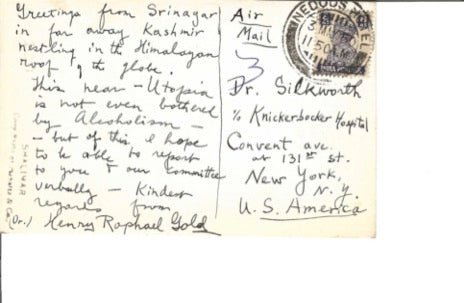 Greetings from Srinagar
in far away Kashmir
nestling in the Himalayan
roof of the globe.
This near - Utopia
is not even bothered
by Alcoholism -
- but of this I hope
to be able to report
to you & our committee
verbally - Kindest
regards from
(Dr.) Henry Raphael Gold
SHALIMAR
Air
Mail
3
NEDOUS HOTEL
Dr. Silkworth
c/o Knickerbocker Hospital
Convent ave.
at 131st st.
New York,
N.Y.
U.S. America